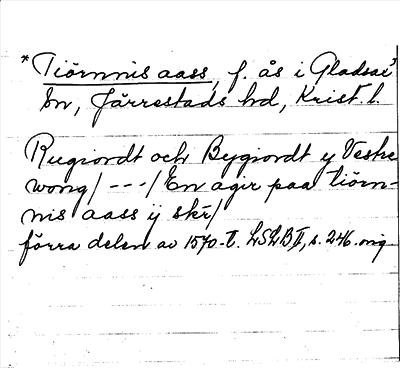 * Tiörnnis aass, f. ås i Gladsax
sn, Järrestads hd, Krist. l.
Rugiordt och Bygiordt y Vestre
wong/ --- / En agir paa tiörn-
nis aass ij skr/
förra delen av 1570-t. LSLB II, s. 246. orig.